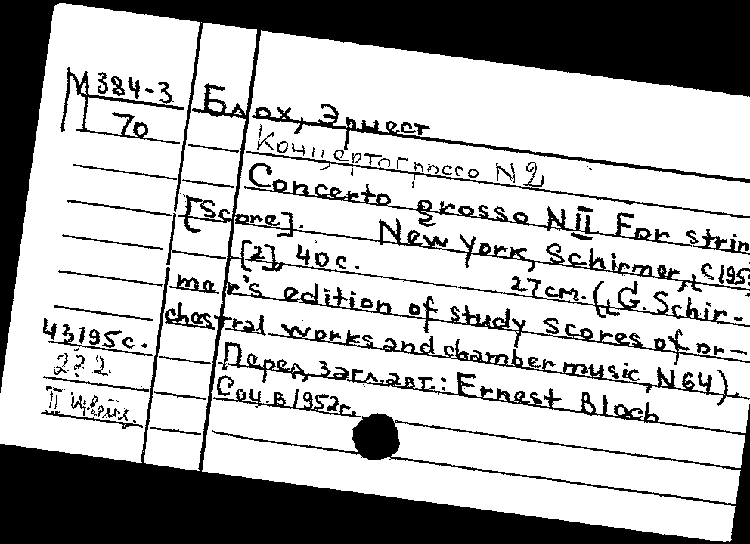 М 384-3
70
Блох, Эрнест
Концертогроссо N2
Concerto grosso N II For strin
[Score]. New York, Schirmer, c 195
[2], 40 c. 27 cm. (G. Schir-
mer's edition of study scores of or-
chestral works and chamber music, N 64).
43195с. Парал. загл. авт.: Ernest Bloch
Соч. в 1952г.
II